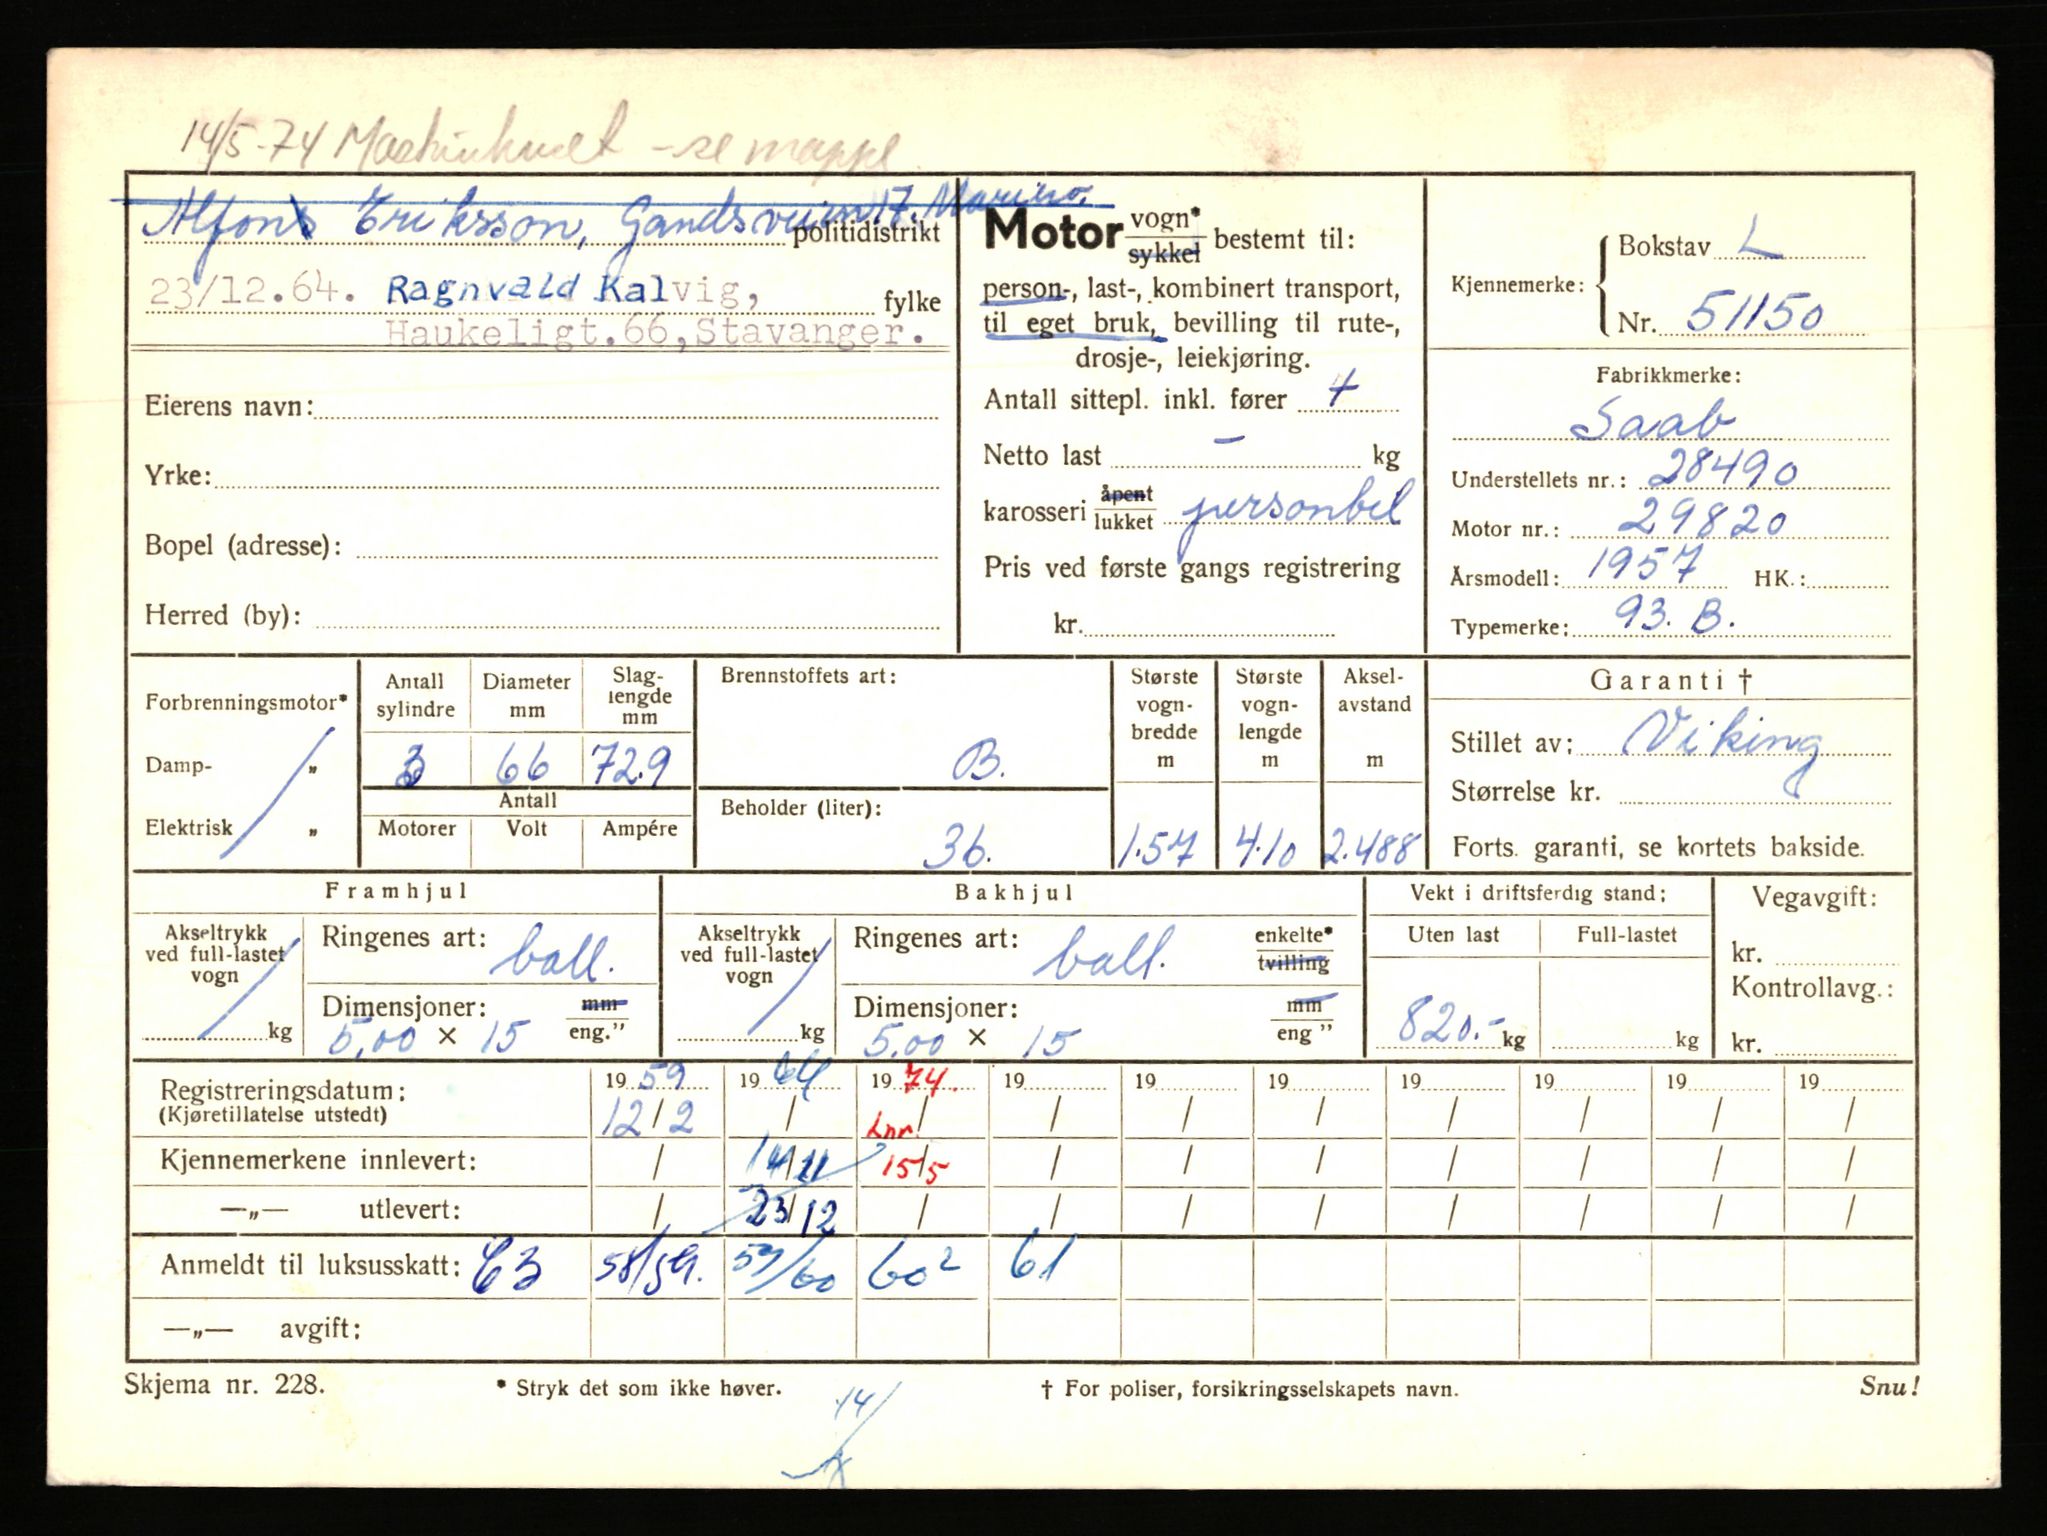 14/5-74 Maskinhuset - se mappe
Alfons Eriksson, Gandsveien 17. Mariero.
politidistrikt
23/12.64. Ragnvald Kalvig,
fylke
Haukeligt.66, Stavanger.
Eierens navn:
Yrke:
Bopel (adresse):
Herred (by):
Motor vogn* sykkel bestemt til:
person-, last-, kombinert transport,
til eget bruk, bevilling til rute-,
drosje-, leiekjøring.
Antall sittepl. inkl. fører 4
Netto last - kg
karosseri åpent lukket personbil
Pris ved første gangs registrering
kr.
Kjennemerke: Bokstav L
Nr. 51150
Fabrikkmerke:
Saab
Understellets nr.: 28490
Motor nr.: 29820
Årsmodell: 1957 HK.:
Typemerke: 93. B.
Forbrenningsmotor*
Damp- „
Elektrisk „
Antall sylindre
Diameter mm
Slaglengde mm
3 66 72.9
Antall
Motorer Volt Ampére
Brennstoffets art:
B.
Beholder (liter):
36.
Største vognbredde m
1.57
Største vognlengde m
4.10
Akselavstand m
2.488
Garanti †
Stillet av: Viking
Størrelse kr.
Forts. garanti, se kortets bakside.
Framhjul
Akseltrykk ved full-lastet vogn
kg
Ringenes art: ball.
Dimensjoner: mm eng."
5,00 × 15
Bakhjul
Akseltrykk ved full-lastet vogn
kg
Ringenes art: ball. enkelte* tvilling
Dimensjoner: mm eng "
5.00 × 15
Vekt i driftsferdig stand:
Uten last Full-lastet
820.- kg kg
Vegavgift:
kr.
Kontrollavg.:
kr.
Registreringsdatum: 19 59 19 64 19 74. 19 19 19 19 19 19 19
(Kjøretillatelse utstedt) 12/2 / Lnr. / / / / / / / /
Kjennemerkene innlevert: / 14/11 15/5 / / / / / / /
—„— utlevert: / 23/12 / / / / / / / /
Anmeldt til luksusskatt: C3 58/59. 59/60 60 2 61
—„— avgift:
Skjema nr. 228.
* Stryk det som ikke høver.
† For poliser, forsikringsselskapets navn.
Snu!
14/